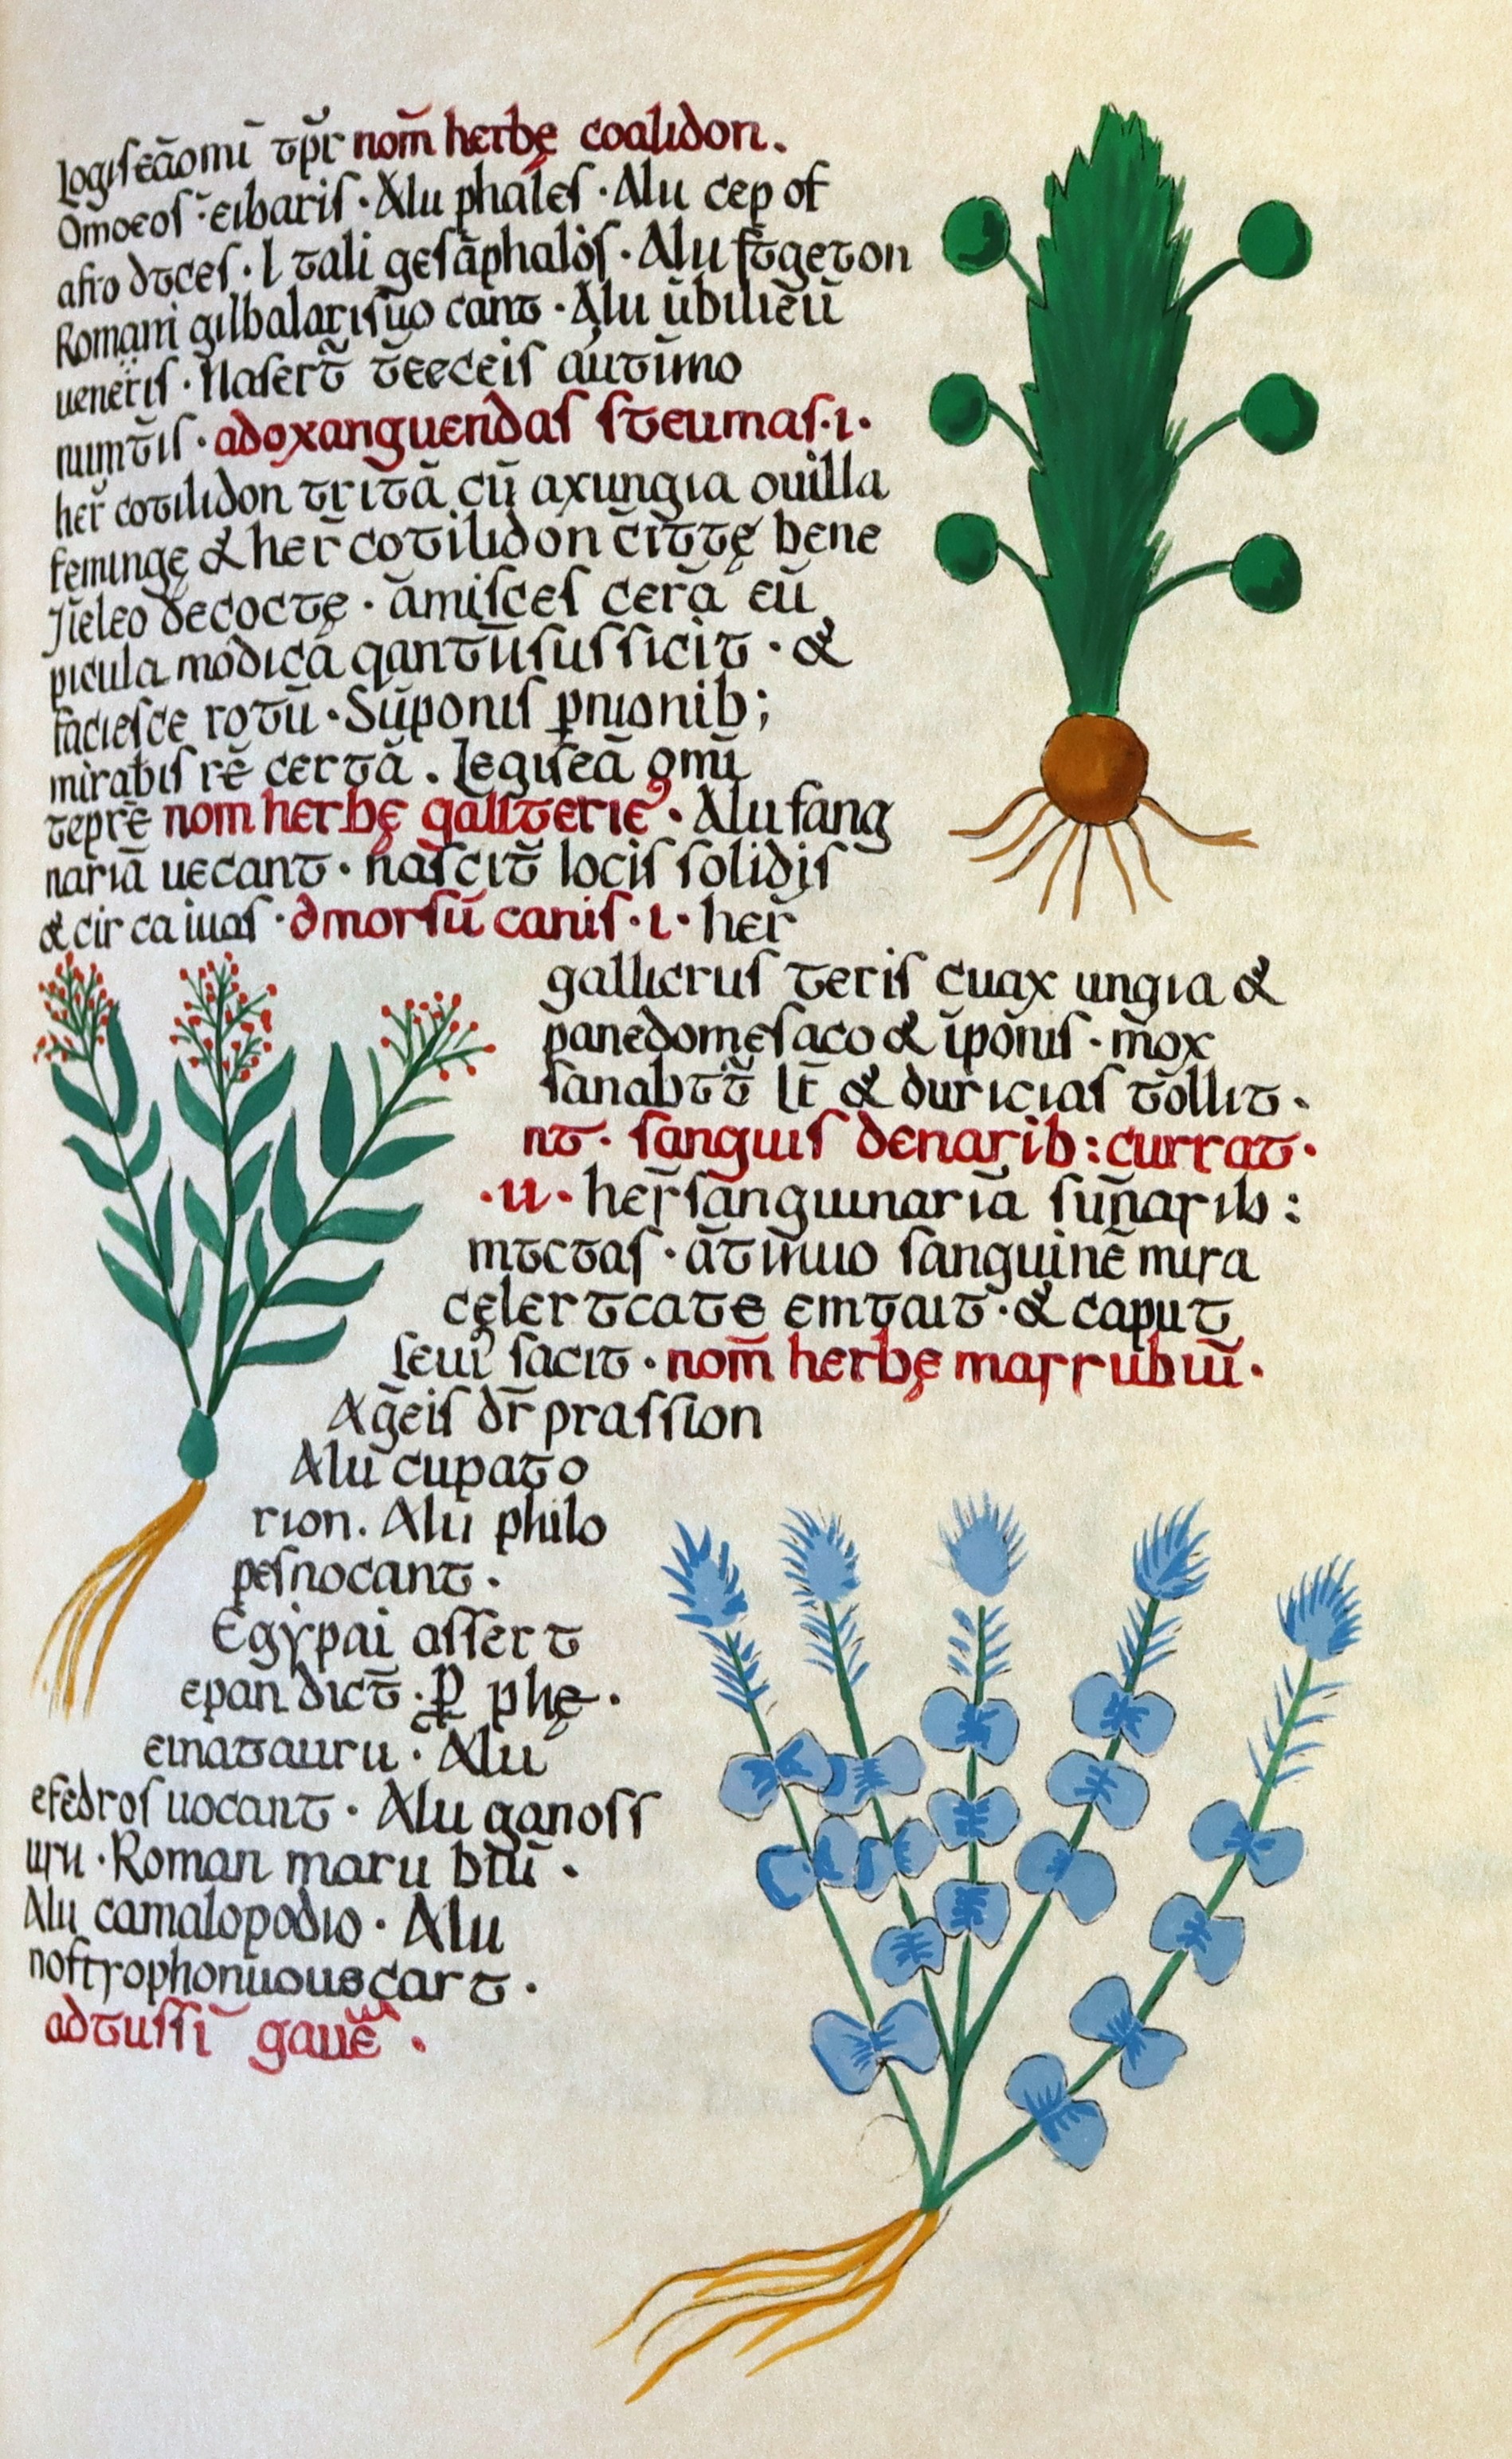 logiseāomī τp̄r nom̄ herbę coalidon.
Omoeos ̄· eibaris · Aλιι phales · Alii cep of
afro dτces · l tali gesāphalos · Alii fτ̄geton
Romani gilbalarisuo cant · Alii ūbiliēū
ueneris · Nasert̄ τēeceis autūno
numτ̄is · adoxanguendas steumas · i ·
her̄ cotilidon tritā cū axungia ouilla
feminge & her̄ cotilidon c̄itτę bene
decocte · āmisces cerā eū
picula modicā qantūsufficit · &
faciesce rotū · Sūponis p̄nionib;
mirabis rē certā . Legiseā omī
tepr̄e nom herbę gallτerie · Alii fang
nariā uecant · nascit̄ locis solidis
& cir ca iuas · dmorsū canis · i · her̄
gallicrus teris cuax ungia &
panedomesaco & īponis · mox
sanabττ̄ lī & duricias tollit ·
nτ · sanguis denarib: currat ·
· u · her̄ sanguinariā sun̄arib:
mτcτas · āτim̄uo sanguinē mira
celer τcate emτaιτ · & caput
leui facit · nom̄ herbę marrubiū ·
Aḡeis dr̄ prassion
Alii cupato
rion. Alii philo
pesnocant ·
Egẏpai assert
epan dict̄ · p phę ·
einaτauru · Alii
efedros uocant · Alii ganoss
uru · Roman maru biū ·
Alii camalopodio · Alii
nostrophonuouscart ·
adtussī gauē ·